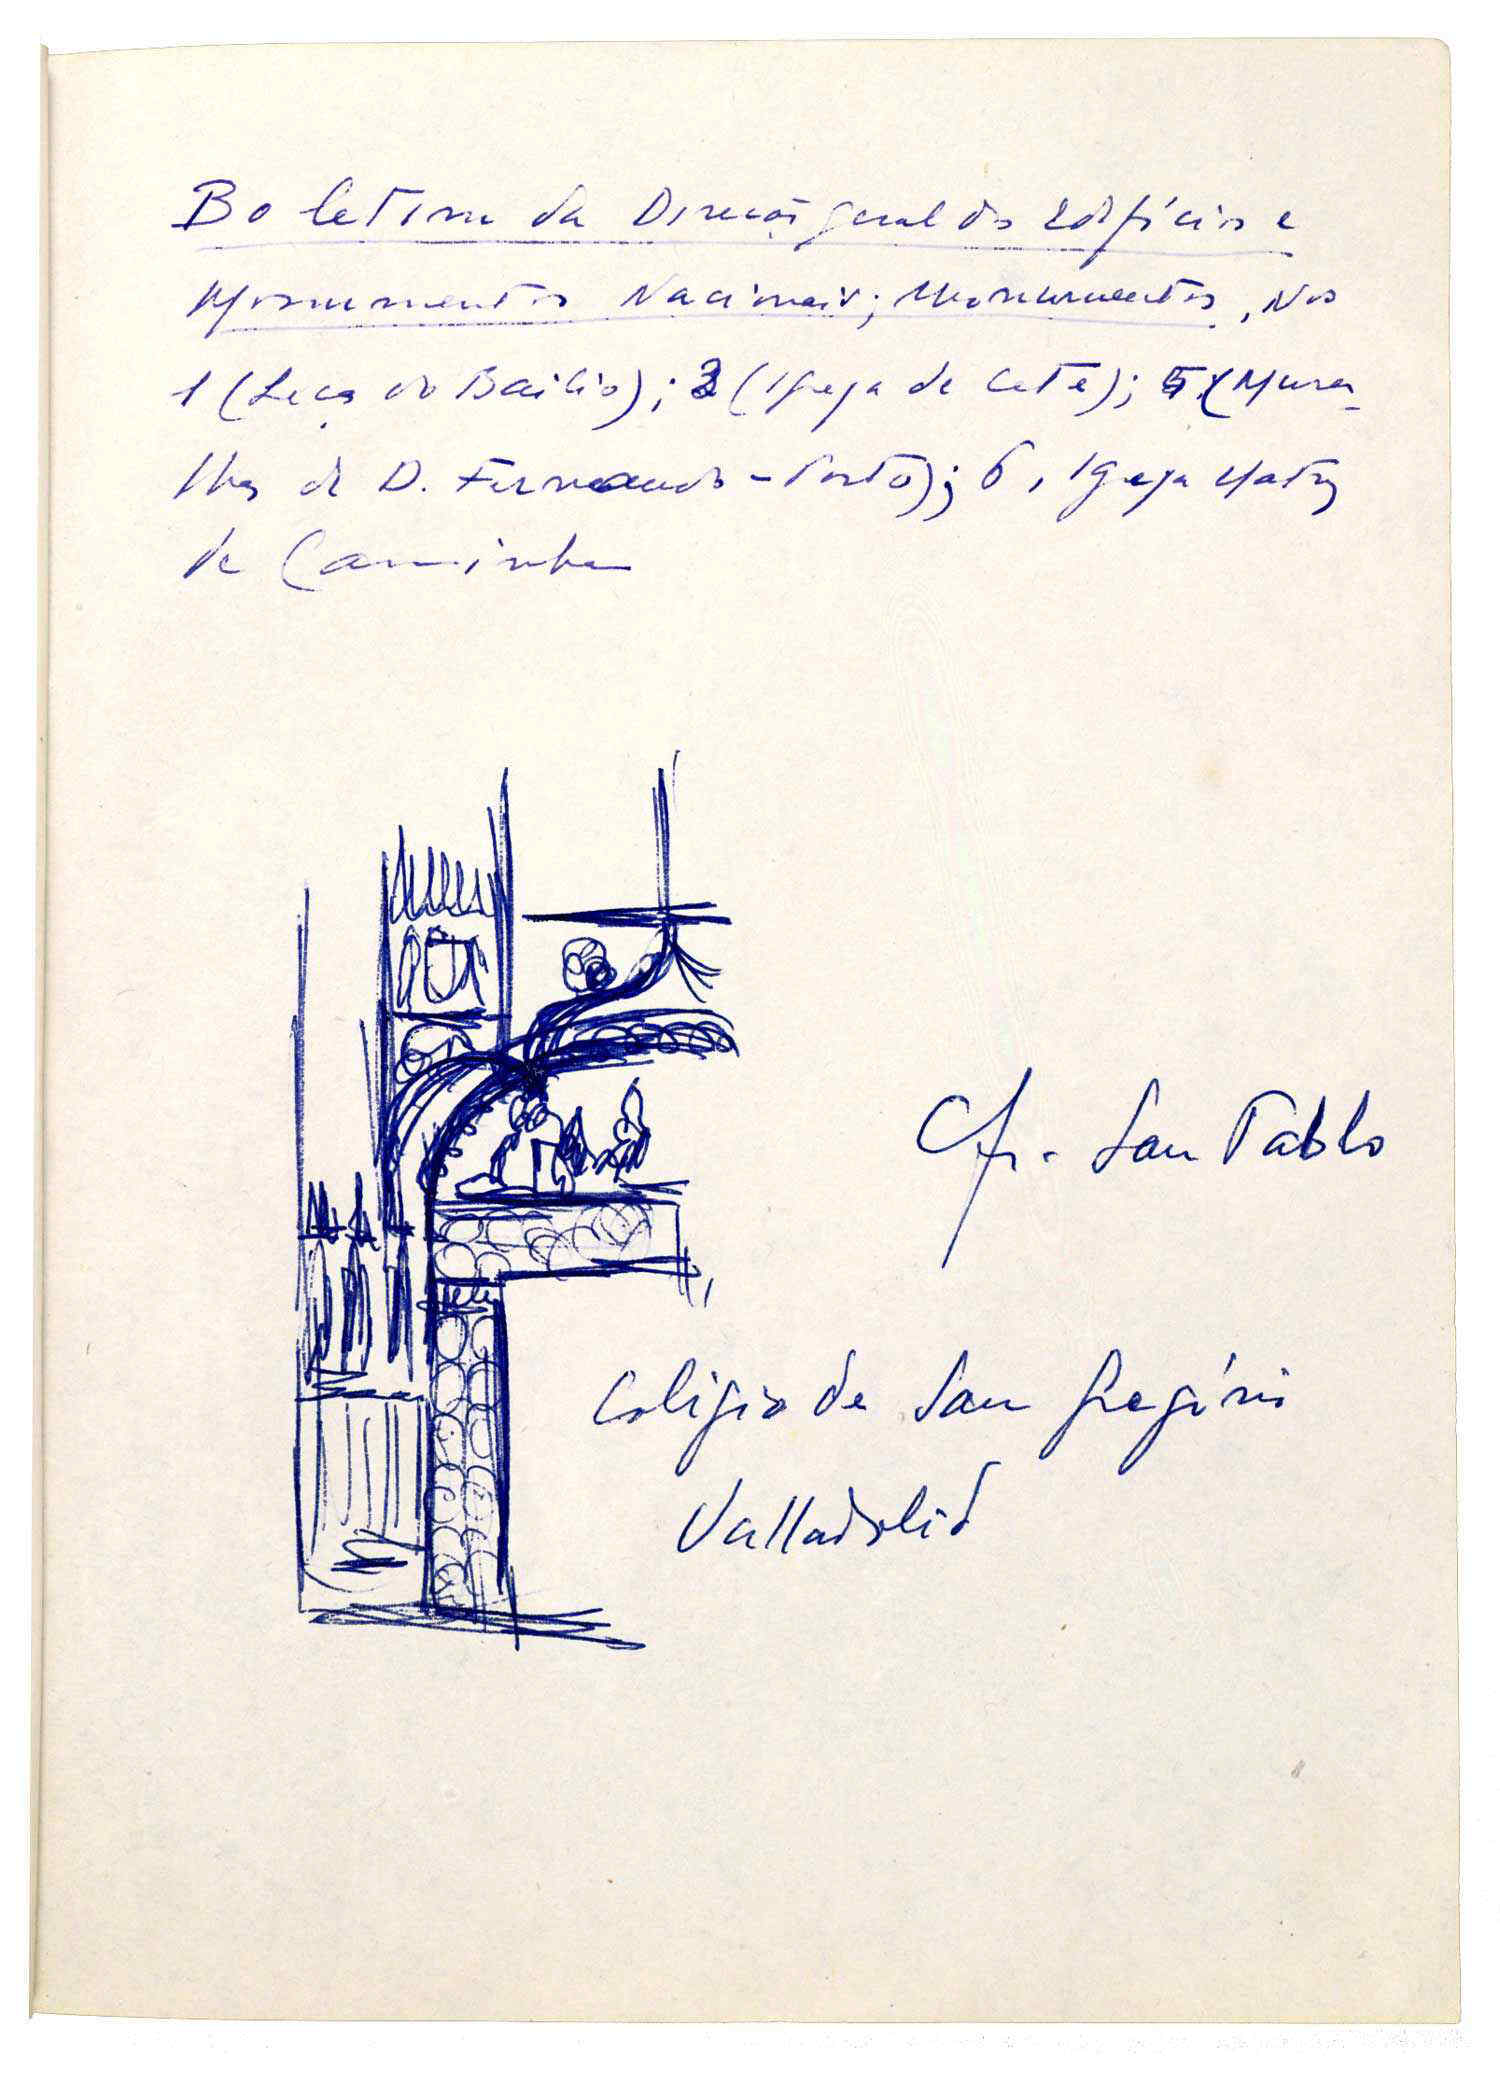 Boletim da Direcção geral dos Edifícios e
Monumentos Nacionais; Monumentos, Nos
1 (Leça do Bailio); 3 (Igreja de Cete); 5 (Mura-
lhas de D. Fernando - Porto); 6, Igreja Matriz
de Caminha
Cfr. San Pablo
Colégio de San Gregório
Valladolid